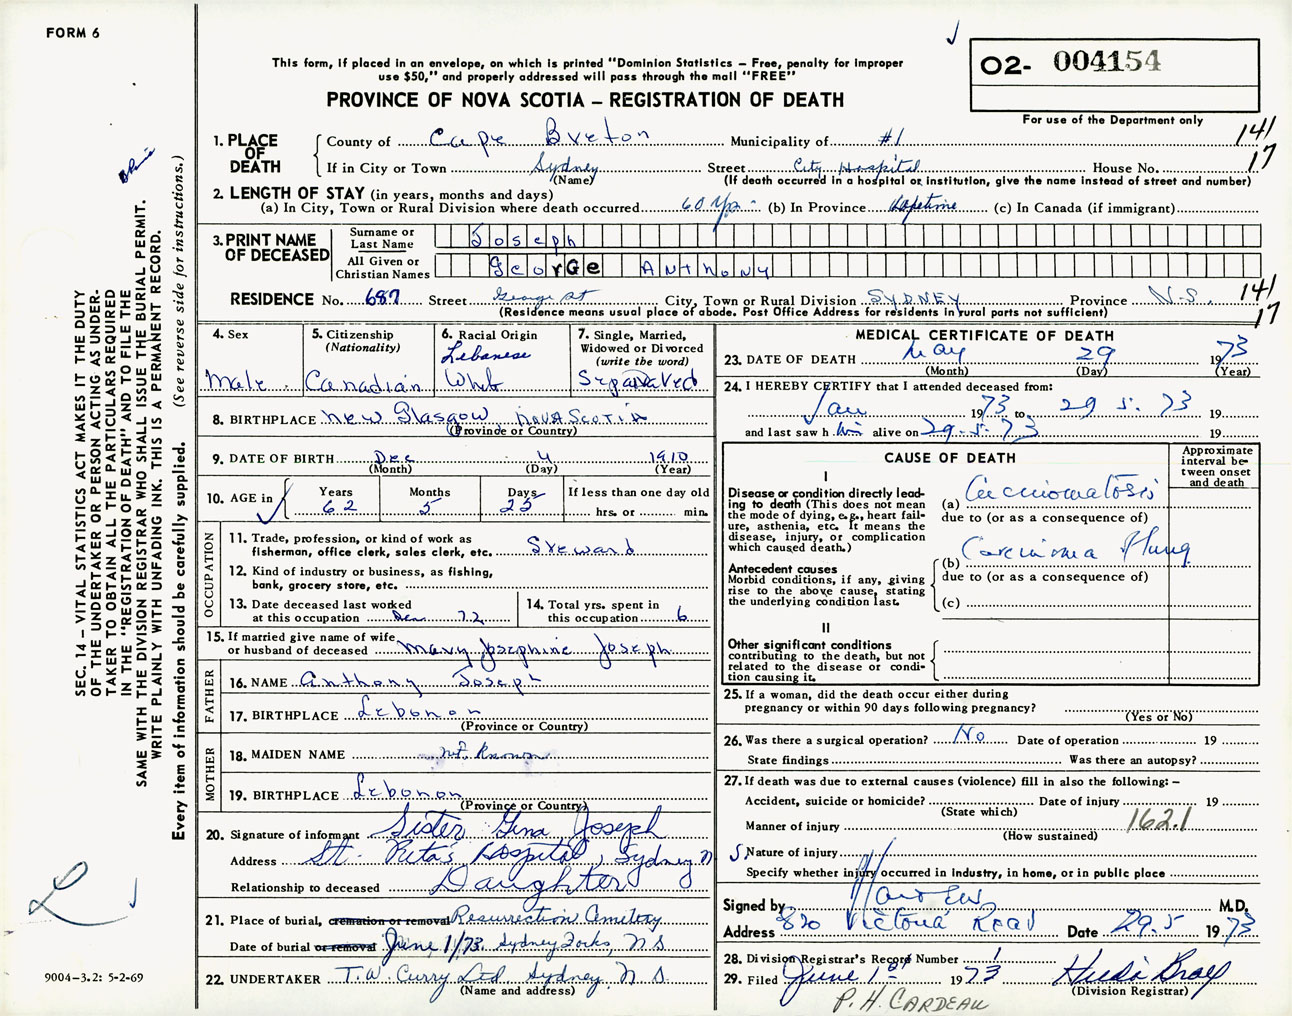 FORM 6
This form, if placed in an envelope, on which is printed "Dominion Statistics – Free, penalty for improper
use $50," and properly addressed will pass through the mail "FREE"
PROVINCE OF NOVA SCOTIA – REGISTRATION OF DEATH
O2- 004154
For use of the Department only
141
17
1. PLACE OF DEATH
County of Cape Breton Municipality of #1
If in City or Town Sydney Street City Hospital House No.
(Name) (If death occurred in a hospital or institution, give the name instead of street and number)
2. LENGTH OF STAY (in years, months and days)
(a) In City, Town or Rural Division where death occurred 60 Yrs (b) In Province Lifetime (c) In Canada (if immigrant)
3. PRINT NAME OF DECEASED
Surname or Last Name Joseph
All Given or Christian Names GeorGe Anthony
RESIDENCE No. 687 Street George St City, Town or Rural Division SYDNEY Province N.S. 141
(Residence means usual place of abode. Post Office Address for residents in rural parts not sufficient) 17
4. Sex
Male
5. Citizenship
(Nationality)
Canadian
6. Racial Origin
Lebanese
White
7. Single, Married,
Widowed or Divorced
(write the word)
Separated
8. BIRTHPLACE New Glasgow NOVA SCOTIA
(Province or Country)
9. DATE OF BIRTH Dec 4 1910
(Month) (Day) (Year)
10. AGE in
Years Months Days If less than one day old
62 5 25 hrs. or min.
OCCUPATION
11. Trade, profession, or kind of work as
fisherman, office clerk, sales clerk, etc. Steward
12. Kind of industry or business, as fishing,
bank, grocery store, etc.
13. Date deceased last worked
at this occupation Dec. 72
14. Total yrs. spent in
this occupation 6
15. If married give name of wife
or husband of deceased Mary Josephine Joseph
FATHER
16. NAME Anthony Joseph
17. BIRTHPLACE Lebonon
(Province or Country)
MOTHER
18. MAIDEN NAME not Known
19. BIRTHPLACE Lebonon
(Province or Country)
20. Signature of informant Sister Gena Joseph
Address St. Rita's Hospital, Sydney N
Relationship to deceased Daughter
21. Place of burial, cremation or removal Resurrection Cemetery
Date of burial or removal June 1/73 Sydney Forks, N S
22. UNDERTAKER T.W. Curry Ltd Sydney, N. S.
(Name and address)
MEDICAL CERTIFICATE OF DEATH
23. DATE OF DEATH May 29 1973
(Month) (Day) (Year)
24. I HEREBY CERTIFY that I attended deceased from:
Jan 1973 to 29 5. 73 19
and last saw h im alive on 29.5.73 19
CAUSE OF DEATH
Approximate
interval be-
tween onset
and death
I
Disease or condition directly lead-
ing to death (This does not mean
the mode of dying, e.g., heart fail-
ure, asthenia, etc. It means the
disease, injury, or complication
which caused death.)
(a) Carcinomatosis
due to (or as a consequence of)
(b) Carcinoma of lung
due to (or as a consequence of)
(c)
Antecedent causes
Morbid conditions, if any, giving
rise to the above cause, stating
the underlying condition last.
II
Other significant conditions
contributing to the death, but not
related to the disease or condi-
tion causing it.
25. If a woman, did the death occur either during
pregnancy or within 90 days following pregnancy?
(Yes or No)
26. Was there a surgical operation? No Date of operation 19
State findings Was there an autopsy?
27. If death was due to external causes (violence) fill in also the following: –
Accident, suicide or homicide? Date of injury 19
(State which)
Manner of injury 162.1
(How sustained)
Nature of injury
Specify whether injury occurred in industry, in home, or in public place
Signed by M.D.
Address 820 Victoria Road Date 29.5 1973
28. Division Registrar's Record Number 1
29. Filed June 1st 1973
(Division Registrar)
P. H. CARDEAU
SEC. 14 – VITAL STATISTICS ACT MAKES IT THE DUTY
OF THE UNDERTAKER OR PERSON ACTING AS UNDER-
TAKER TO OBTAIN ALL THE PARTICULARS REQUIRED
IN THE "REGISTRATION OF DEATH" AND TO FILE THE
SAME WITH THE DIVISION REGISTRAR WHO SHALL ISSUE THE BURIAL PERMIT.
WRITE PLAINLY WITH UNFADING INK. THIS IS A PERMANENT RECORD.
Every item of information should be carefully supplied. (See reverse side for instructions.)
L
9004-3.2: 5-2-69